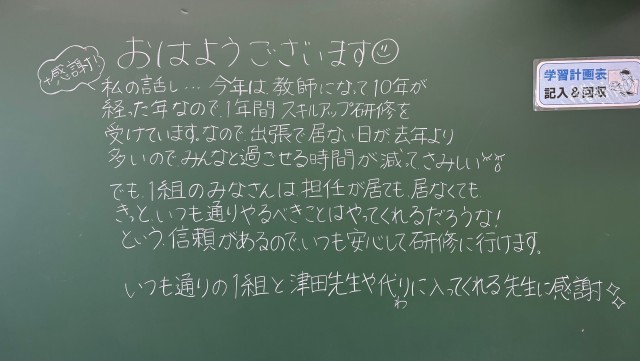 おはようございます
感謝!
私の話し…今年は、教師になって10年が
経った年なので、1年間スキルアップ研修を
受けています。なので、出張で居ない日が、去年より
多いので、みんなと過ごせる時間が減ってさみしい
でも、1組のみなさんは、担任が居ても、居なくても
きっと、いつも通りやるべきことはやってくれるだろうな!
という、信頼があるので、いつも安心して研修に行けます。
いつも通りの1組と津田先生や代りに入ってくれる先生に感謝!
わ
学習計画表
記入&回収